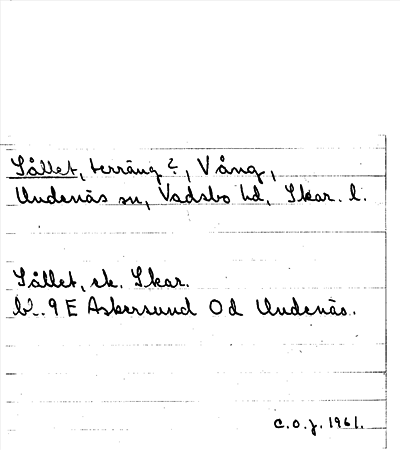 Sållet, terräng?, Vång,
Undenäs sn, Vadsbo hd, Skar. l.
Sållet, ek. Skar.
bl. 9 E Askersund Od Undenäs.
C.O.J. 1961.